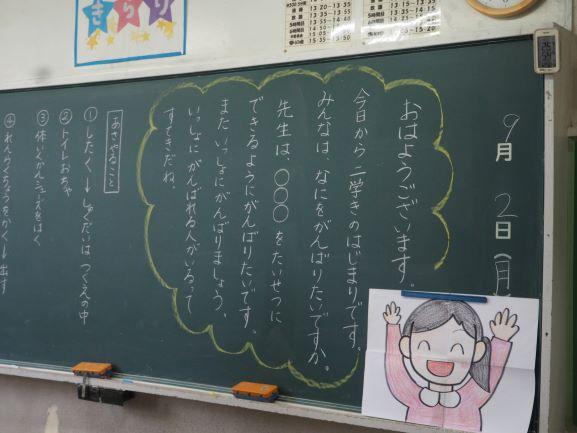 9月2日(月
おはようございます。
今日から二学きのはじまりです。
みんなは、なにをがんばりたいですか。
先生は、○○○をたいせつに
できるようにがんばりたいです。
またいっしょにがんばりましょう。
いっしょにがんばれる人がいるって
すてきだね。
あさやること
①したく→しゅくだいはつくえの中
②トイレおちゃ
③体いくかんシューズをはく
④れんらくちょうをかく→出す
きらり